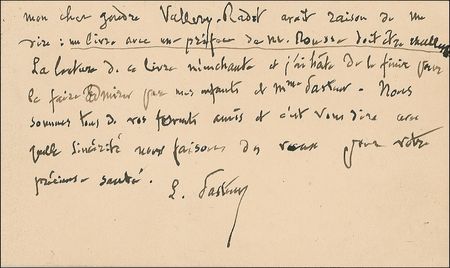 mon cher gendre Vallery-Radot avait raison de me
dire : un livre avec une préface de Mr. Rousse doit être excellent
La lecture de ce livre m'enchante et j'ai hâte de le finir pour
le faire admirer par mes enfants et Mme Pasteur - Nous
sommes tous de vos fervents amis et c'est vous dire avec
quelle sincérité nous faisons des vœux pour votre
précieuse santé.
L. Pasteur